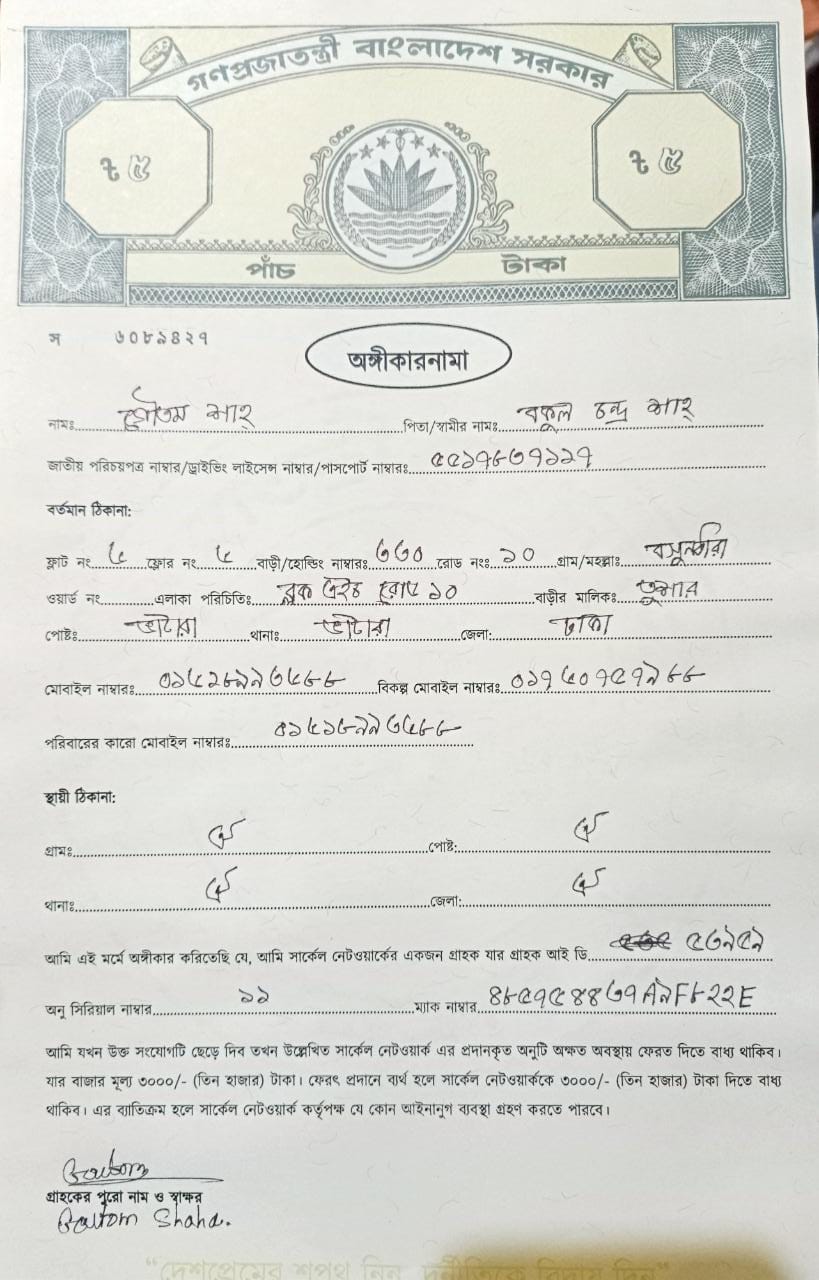 গণপ্রজাতন্ত্রী বাংলাদেশ সরকার
৳ ৫ ৳ ৫
পাঁচ টাকা
স ৬০৮৯৪২৭
অঙ্গীকারনামা
নামঃ গৌতম সাহ পিতা/স্বামীর নামঃ বকুল চন্দ্র সাহ
জাতীয় পরিচয়পত্র নাম্বার/ড্রাইভিং লাইসেন্স নাম্বার/পাসপোর্ট নাম্বারঃ
বর্তমান ঠিকানা:
ফ্লাট নং ফ্লোর নং বাড়ী/হোল্ডিং নাম্বারঃ ৩৩০ রোড নংঃ ১০ গ্রাম/মহল্লাঃ বসুন্ধরা
ওয়ার্ড নং এলাকা পরিচিতিঃ ব্লক রোড ১০ বাড়ীর মালিকঃ তুষার
পোষ্টঃ ভাটারা থানাঃ ভাটারা জেলা: ঢাকা
মোবাইল নাম্বারঃ বিকল্প মোবাইল নাম্বারঃ
পরিবারের কারো মোবাইল নাম্বারঃ
স্থায়ী ঠিকানা:
গ্রামঃ পোষ্ট:
থানাঃ জেলা:
আমি এই মর্মে অঙ্গীকার করিতেছি যে, আমি সার্কেল নেটওয়ার্কের একজন গ্রাহক যার গ্রাহক আই ডি ৫৩৯৫৯
অনু সিরিয়াল নাম্বার ১১ ম্যাক নাম্বার ৪৮৫৭৫৪৪৬৭A৯F৮২২E
আমি যখন উক্ত সংযোগটি ছেড়ে দিব তখন উল্লেখিত সার্কেল নেটওয়ার্ক এর প্রদানকৃত অনুটি অক্ষত অবস্থায় ফেরত দিতে বাধ্য থাকিব।
যার বাজার মূল্য ৩০০০/- (তিন হাজার) টাকা। ফেরৎ প্রদানে ব্যর্থ হলে সার্কেল নেটওয়ার্ককে ৩০০০/- (তিন হাজার) টাকা দিতে বাধ্য
থাকিব। এর ব্যতিক্রম হলে সার্কেল নেটওয়ার্ক কর্তৃপক্ষ যে কোন আইনানুগ ব্যবস্থা গ্রহণ করতে পারবে।
Goutom
গ্রাহকের পুরো নাম ও স্বাক্ষর
Goutom Shaha.
“দেশপ্রেমের শপথ নিন, দুর্নীতিকে বিদায় দিন”